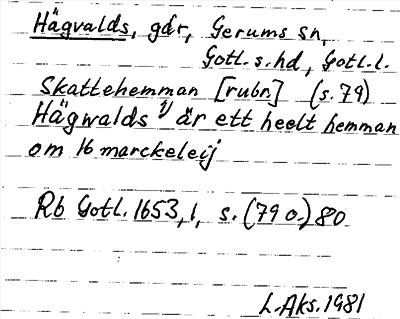 Hägvalds, går, Gerums sn,
Gotl. s. hd, Gotl. l.
Skattehemman [rubr.] (s. 79)
Hägwalds 1) är ett heelt hemman
om 16 marckeleij
Rb Gotl. 1653, 1, s. (79 o.) 80
L. Aks. 1981